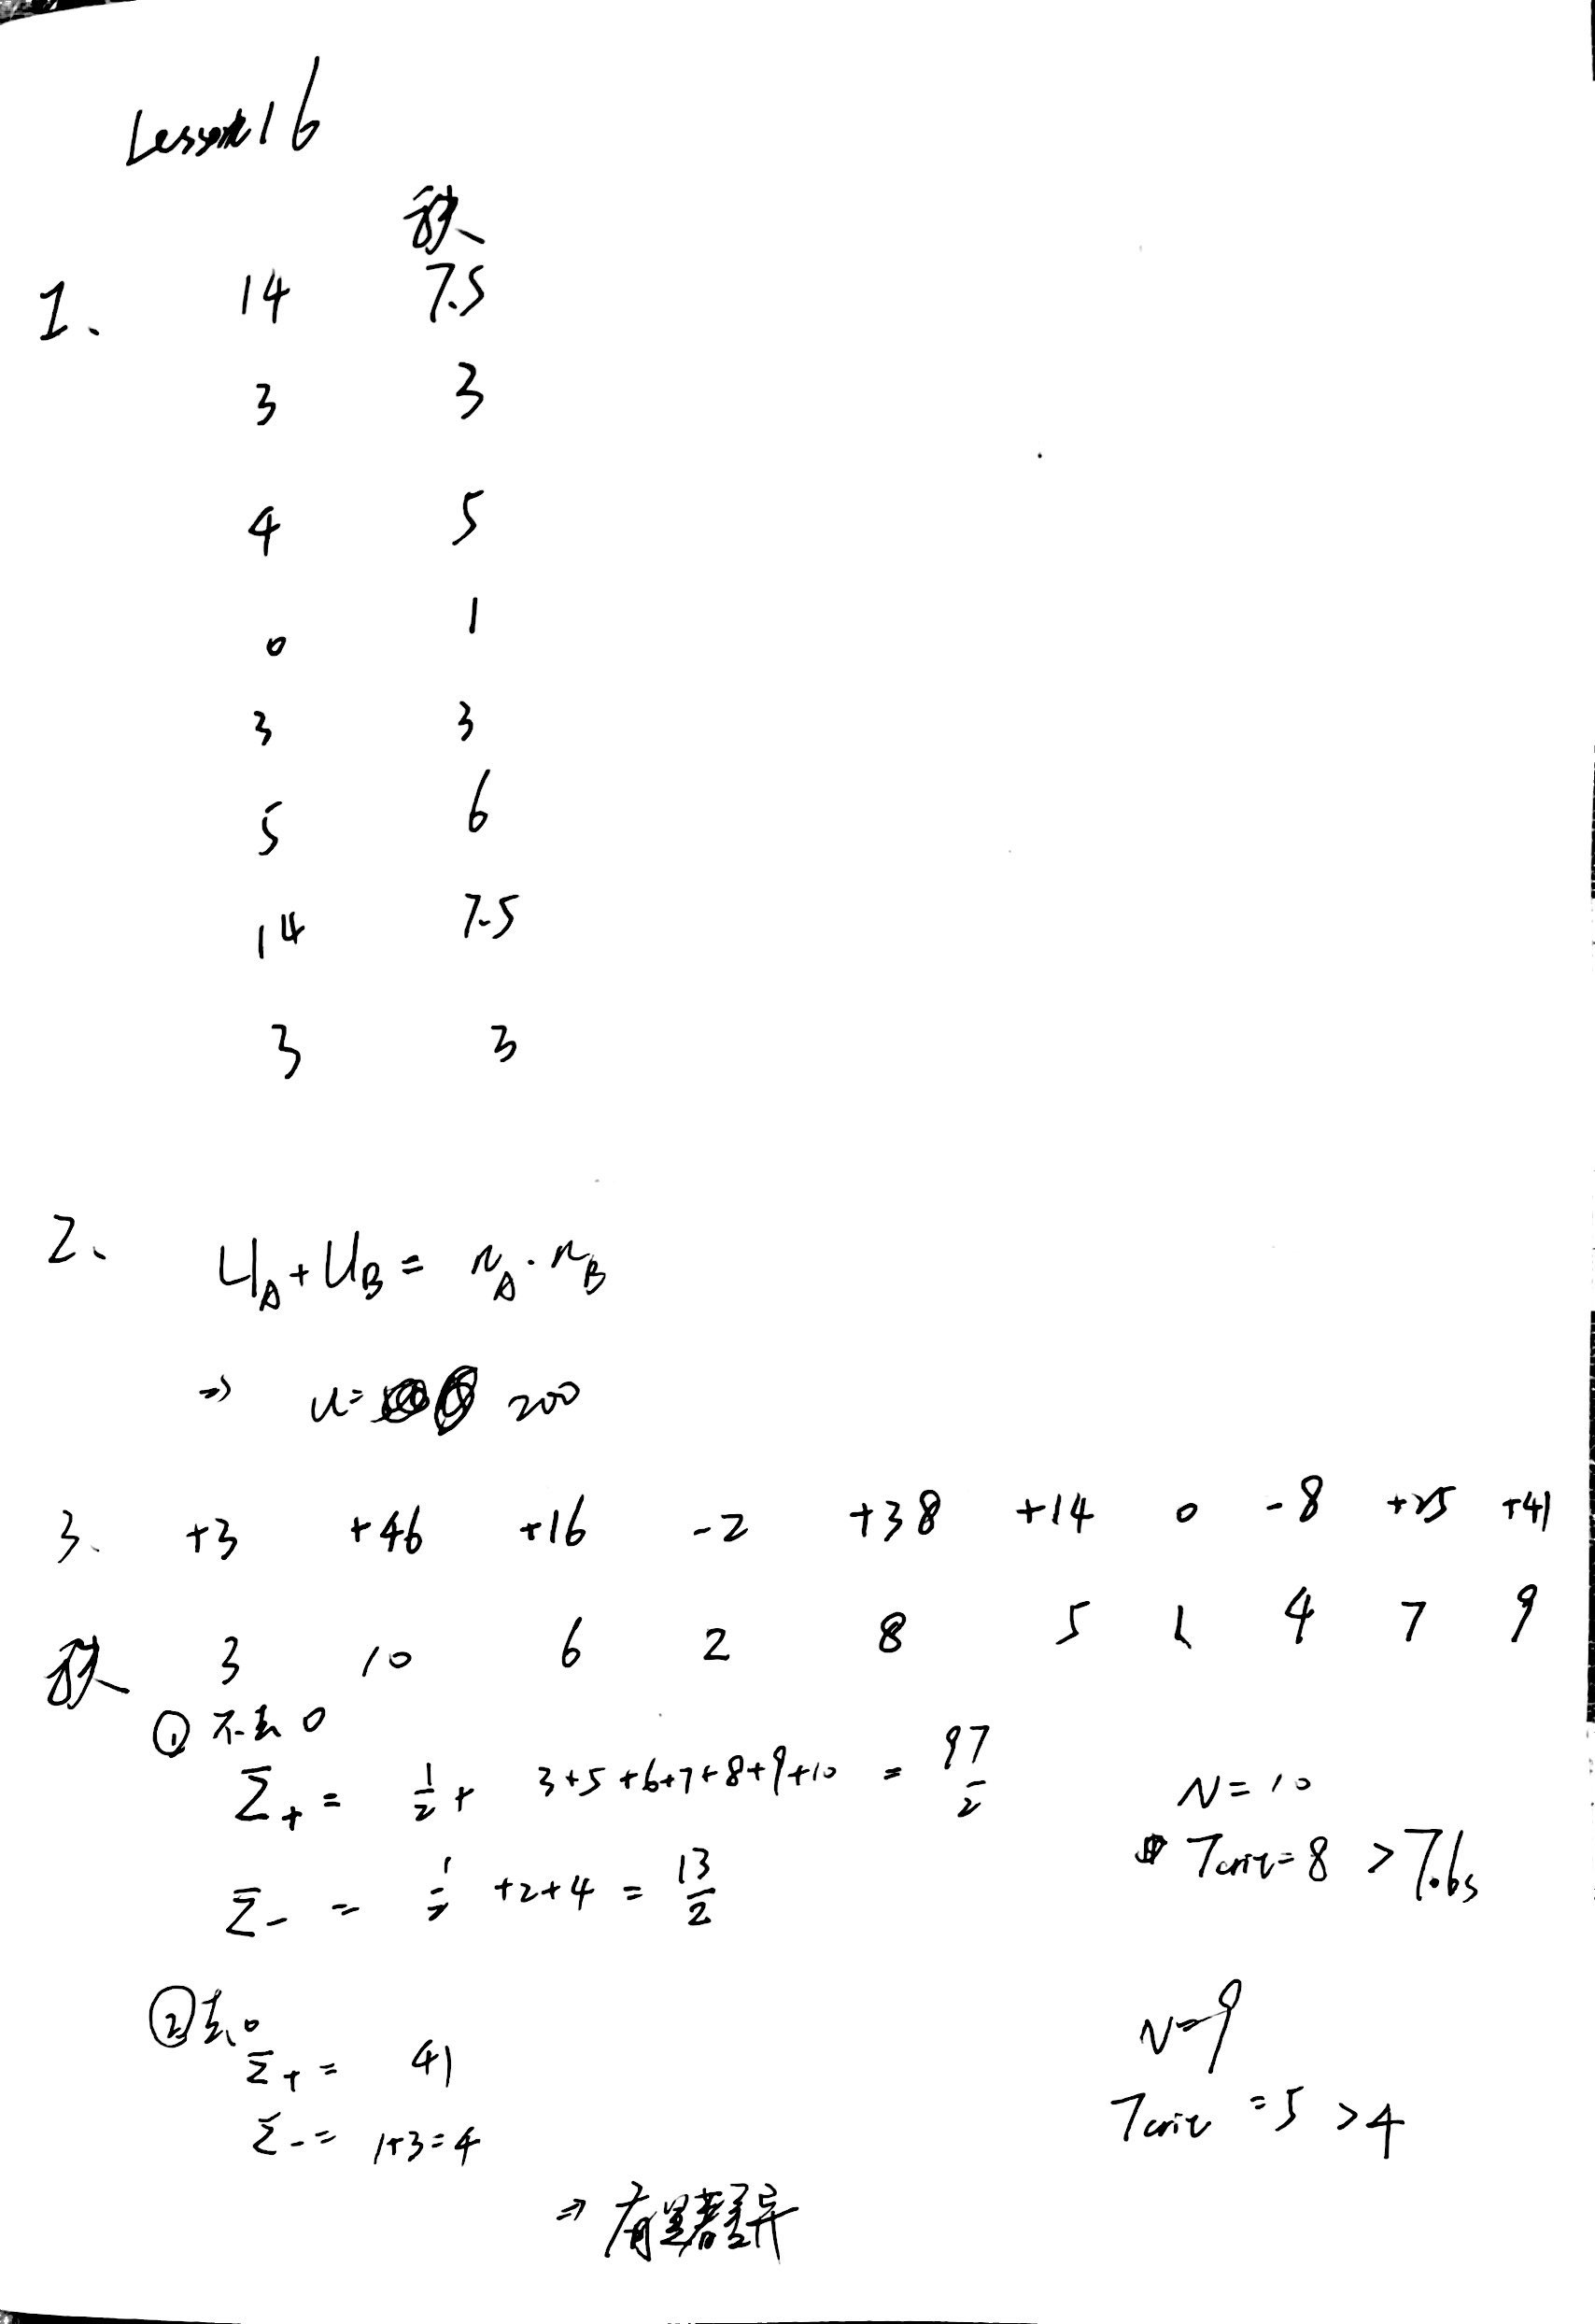 Lesson 16
秩
1、 14 7.5
3 3
4 5
0 1
3 3
5 6
14 7.5
3 3
2、 U_A+U_B = n_A·n_B
⇒ u= 200
3、 +3 +46 +16 -2 +38 +14 0 -8 +25 +41
秩 3 10 6 2 8 5 1 4 7 9
① 不去 0
Σ+ = 1/2 + 3+5+6+7+8+9+10 = 97/2 N=10
Σ- = 1/2 +2+4 = 13/2 Tcrit=8 >
② 去0 N=9
Σ+ = 41
Σ- = 1+3=4 Tcrit =5 >4
⇒ 有显著差异